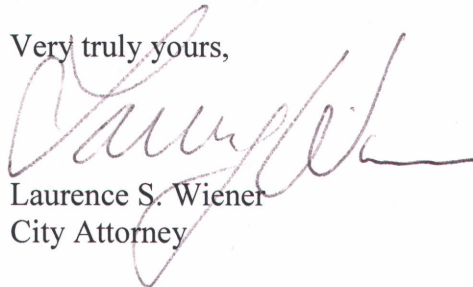 Very truly yours,
Laurence S. Wiener
City Attorney